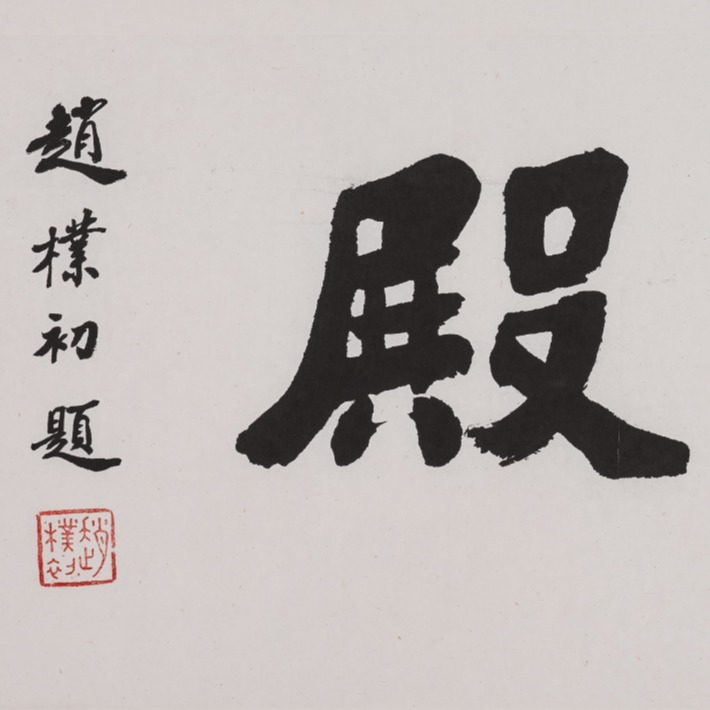 殿
趙樸初題
趙樸初